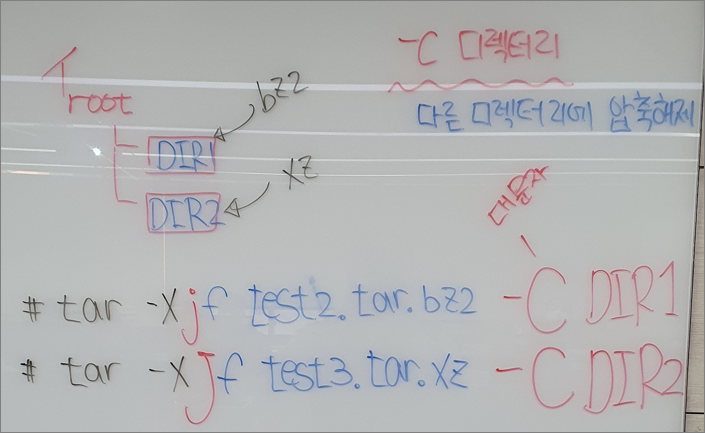 -C 디렉터리
다른 디렉터리에 압축해제
/root
bz2
DIR1
xz
DIR2
대문자
# tar -xjf test2.tar.bz2 -C DIR1
# tar -xJf test3.tar.xz -C DIR2